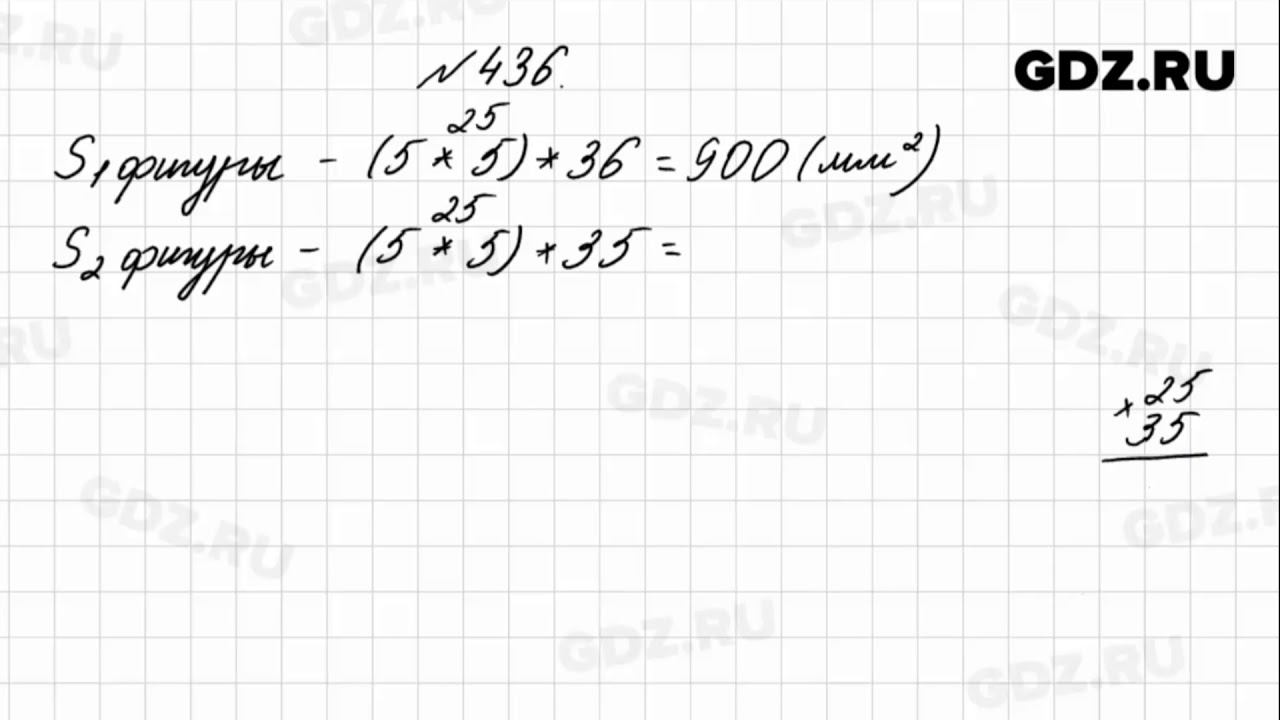 GDZ.RU
№436.
25
S1 фигуры - (5 * 5) * 36 = 900 (мм²)
25
S2 фигуры - (5 * 5) * 35 =
× 25
35
GDZ.RU
GDZ.RU
GDZ.RU
GDZ.RU
GDZ.RU
GDZ.RU
GDZ.RU
GDZ.RU
GDZ.RU
GDZ.RU
GDZ.RU